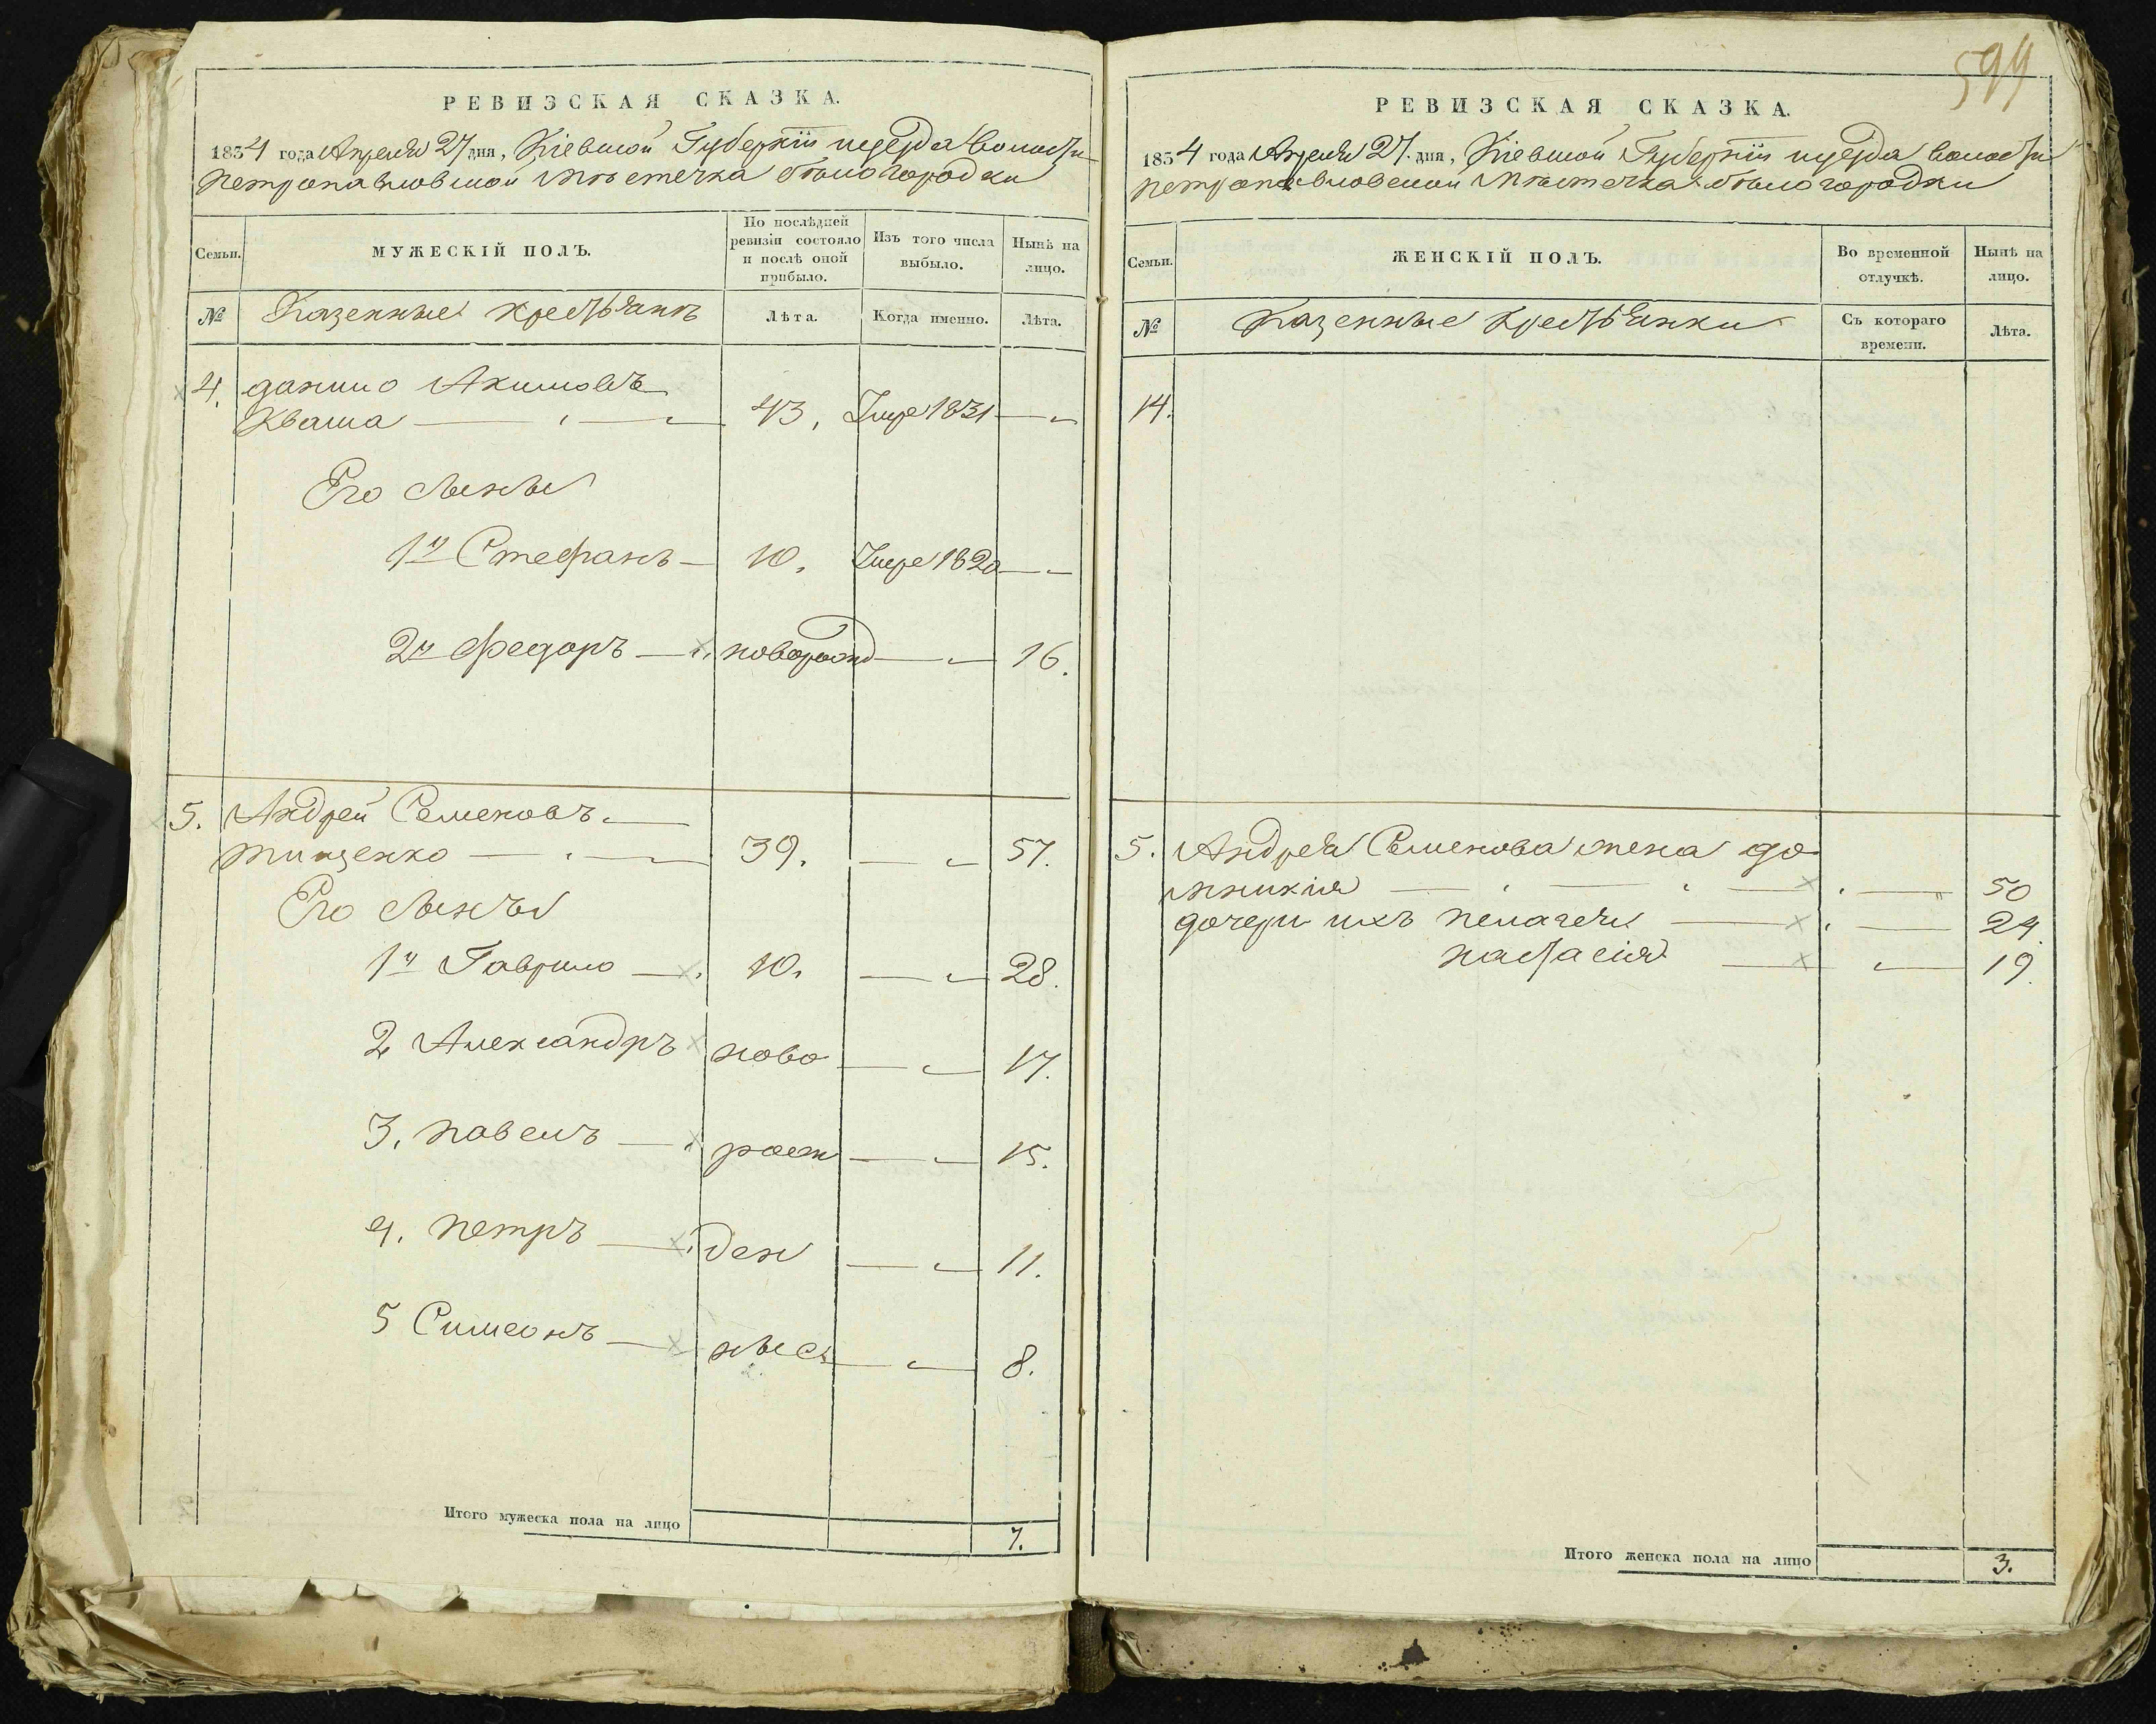 594
РЕВИЗСКАЯ СКАЗКА.
1834 года Апреля 27 дня, Кіевской Губерніи и уезда волости
петропавловской мѣстечка бѣлогородки
Семьи. МУЖЕСКІЙ ПОЛЪ. По послѣдней ревизіи состояло и послѣ оной прибыло. Изъ того числа выбыло. Нынѣ на лицо.
№ Казенные крестьянѣ Лѣта. Когда именно. Лѣта.
4. данило Акимовъ
Кваша 43. Умре 1831
Его сыны
1й Стефанъ 10. Умре 1820
2й Федоръ новорожд 16.
5. Андрей Семеновъ
тищенко 39. 57.
Его сыны
1й Гаврило 10. 28.
2 Александръ ново 17.
3. павелъ рож 15.
4. петръ ден 11.
5 Симеонъ ные 8.
Итого мужеска пола на лицо 7.
РЕВИЗСКАЯ СКАЗКА.
1834 года Апреля 27. дня, Кіевской Губерніи и уезда волости
петропавловской мѣстечка бѣлогородки
Семьи. ЖЕНСКІЙ ПОЛЪ. Во временной отлучкѣ. Нынѣ на лицо.
№ Казенные крестьянки Съ котораго времени. Лѣта.
14.
5. Андрея Семенова жена до
мникия 50
дочери ихъ пелагея 24.
настасия 19.
Итого женска пола на лицо 3.